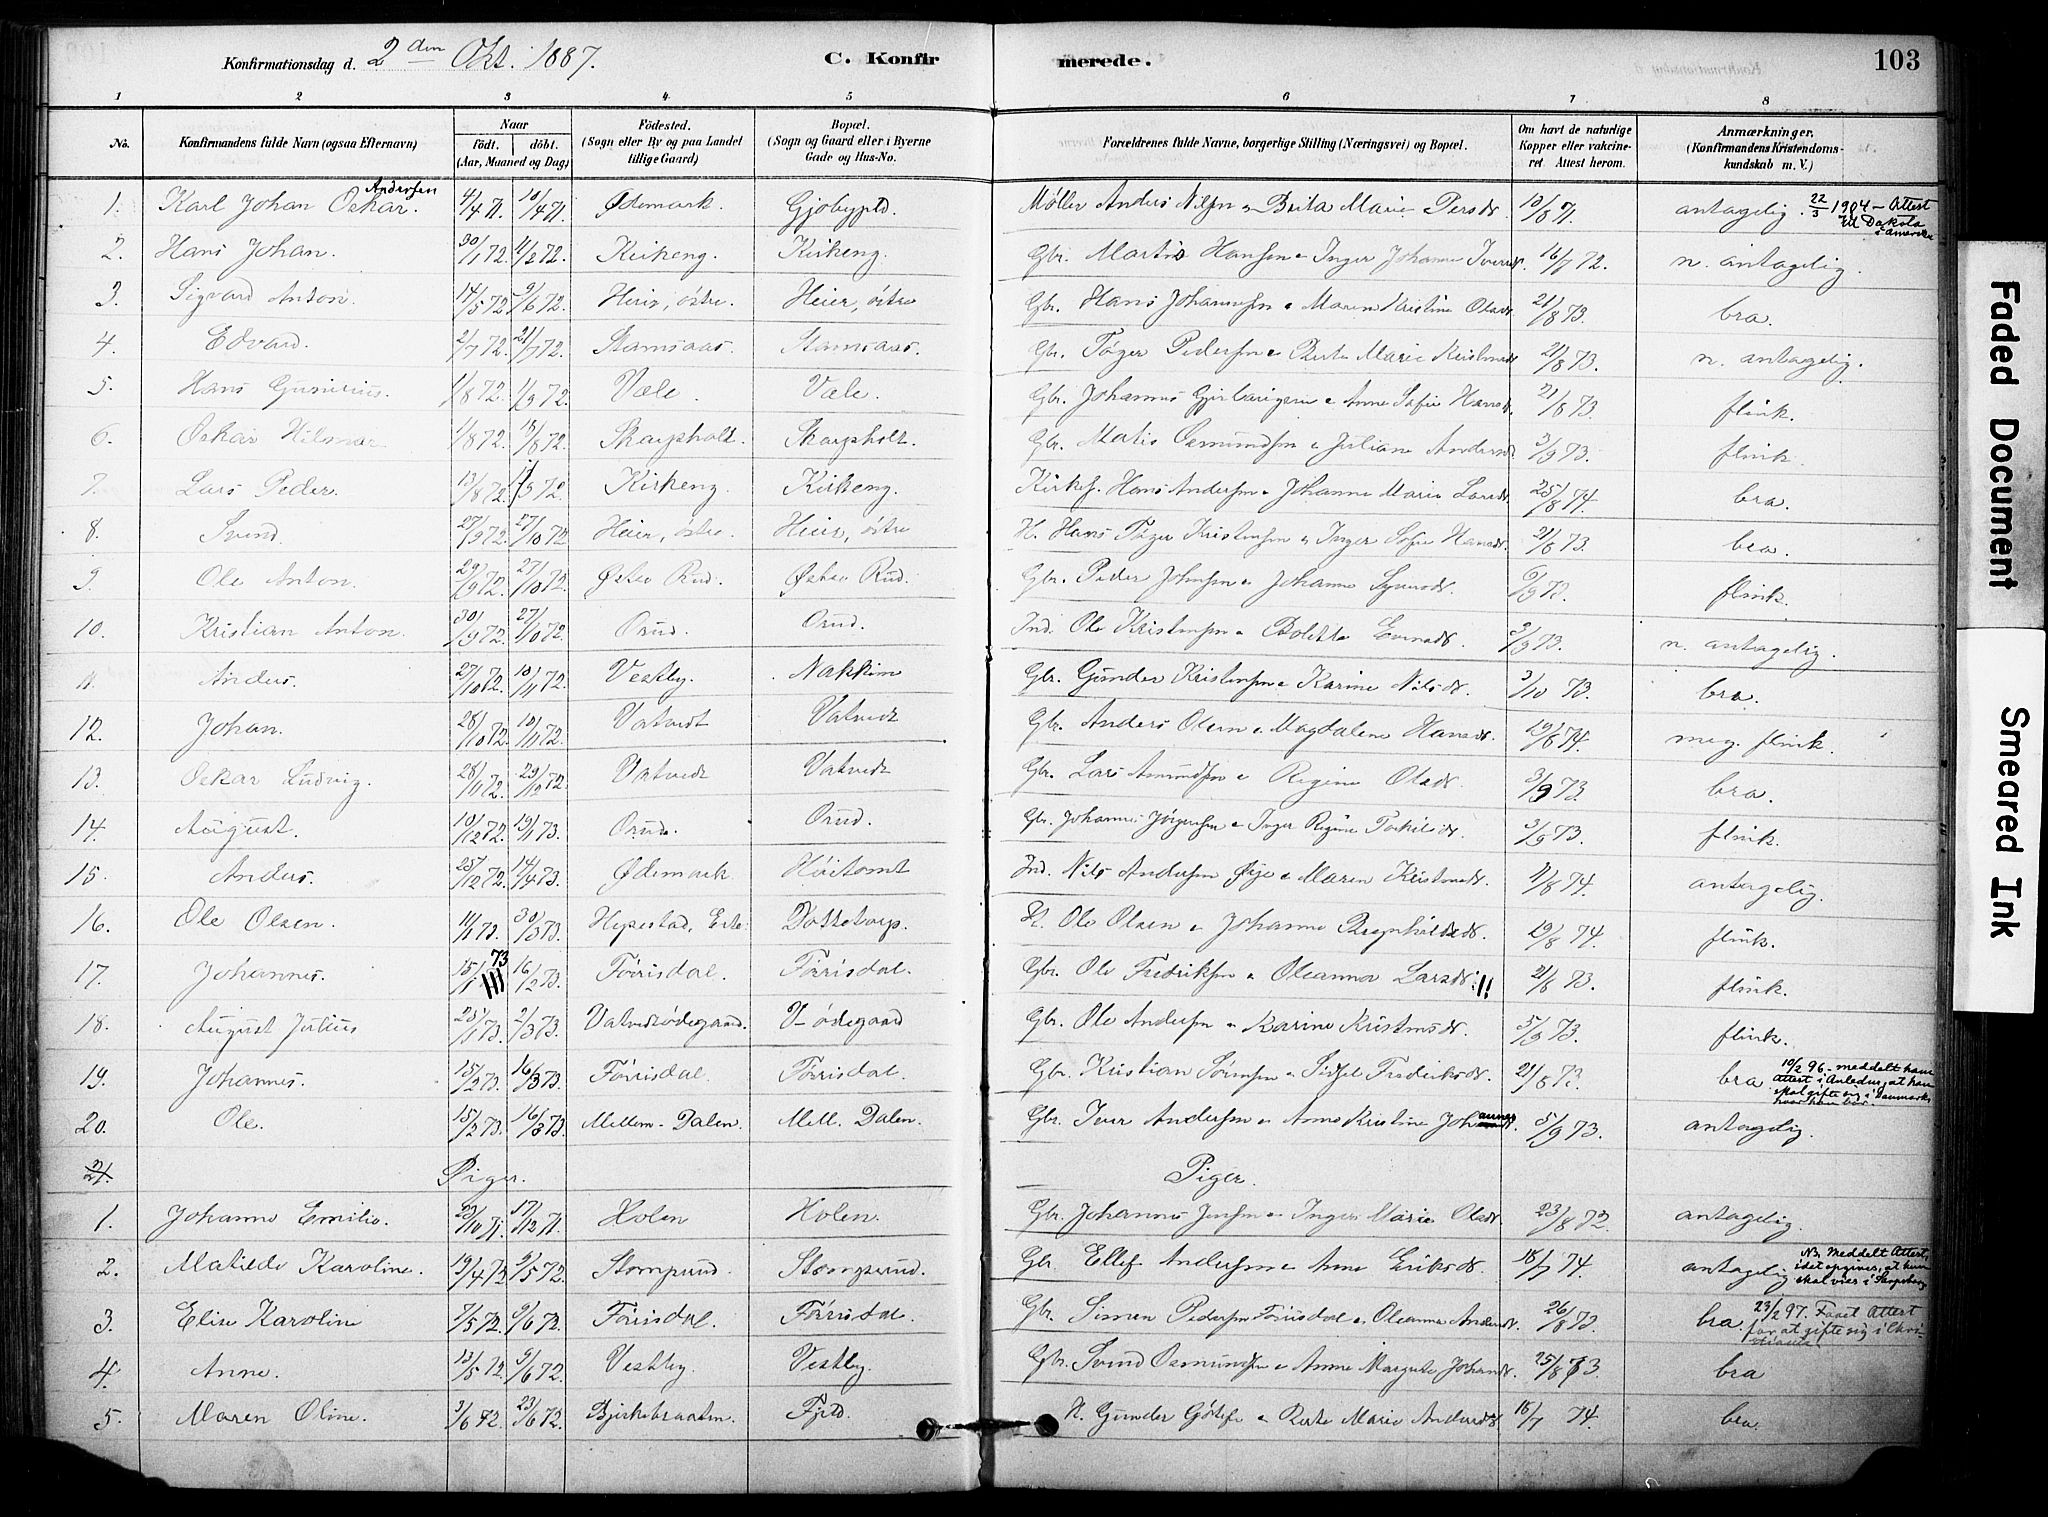 Konfirmationsdag d. 2den Okt. 1887. C. Konfirmerede. 103
1 2 3 4 5 6 7 8
No. Konfirmandens fulde Navn (ogsaa Efternavn) Naar født. døbt. (Aar, Maaned og Dag) Fødested. (Sogn eller By og paa Landet tillige Gaard) Bopæl. (Sogn og Gaard eller i Byerne Gade og Hus-No. Forældrenes fulde Navne, borgerlige Stilling (Næringsvei) og Bopæl. Om havt de naturlige Kopper eller vakcineret. Attest herom. Anmærkninger. (Konfirmandens Kristendomskundskab m. V.)
1. Karl Johan Oskar Andersen. 4/4 71. 10/4 71. Ødemark. Møller Anders Nilsen o Brita Marie Persdt. 10/8 71. antagelig. 22/3 1904 - Attest til Dakota i Amerika
2. Hans Johan. 30/1 72. 11/2 72. Kirkeng. Kirkeng. Gbr. Martis Hansen o Inger Johanne Iversdt. 16/7 72. n. antagelig.
3. Sigvard Anton. 14/5 72. 9/6 72. Heier, østre. Heier, østre Gbr. Hans Johannesen o Maren Kristine Olsdt. 21/8 73. bra.
4. Edvard. 2/7 72. 21/7 72. Stamsaas. Stamsaas. Gbr. Tøger Pedersen o Berte Marie Kristensdt. 21/8 73. n. antagelig.
5. Hans Gunerius. 1/8 72. 1/9 72. Væle. Væle. Gbr. Johannes o Anne Sofie Hansdt. 21/8 73. flink.
6. Oskar Hilmar 1/8 72. 18/8 72. Skarpholt. Skarpholt. Gbr. Matis Osmundsen o Juliane Andersdt. 3/9 73. flink.
7. Lars Peder. 13/8 72. 1/9 72. Kirkeng. Kirkeng. Kirkes. Hans Andersen o Johanne Marie Larsdt. 25/8 74. bra.
8. Svend. 27/9 72. 27/10 72 Heier, østre. Heier, østre H. Hans Tøger Kristensen o Inger Sofie Hansdt. 21/8 73. bra.
9. Ole Anton. 29/9 72. 27/10 72. Østre Rud. Østre Rud. Gbr. Peder Johnsen o Johanne 73. flink.
10. Kristian Anton. 30/9 72. 27/10 72. Orud. Orud. Ind. Ole Kristensen o Bolette Evensdt. 3/9 73. n. antagelig.
11. Anders. 27/10 72. 10/11 72. Vestby. Nakkim Gbr. Gunder Kristensen o Karine Nilsdt. 3/10 73. bra.
12. Johan. 28/10 72. 10/11 72. Vatvedt Vatvedt Gbr. Anders Olsen o Magdalene Hansdt. 19/8 74. meg. flink.
13. Oskar Ludvig. 28/11 72. 29/12 72. Vatvedt Vatvedt Gbr. Lars Amundsen o Regine Olsdt. 3/9 73. bra.
14. August. 10/12 72. 19/1 73. Orud. Orud. Gbr. Johannes Jørgensen o Inger Regine Torkilsdt. 3/9 73. flink.
15. Anders. 25/12 72. 14/4 73. Ødemark Høitomt Ind. Nils Andersen Øie o Maren Kristensdt. 11/8 74. antagelig.
16. Ole Olsen. 11/1 73. 30/3 73. Dottetorp. H. Ole Olsen o Johanne Bragnhildsdt. 19/8 74. flink.
17. Johannes. 15/1 73 16/2 73. Førrisdal. Førrisdal. Gbr. Ole Fredriksen o Oleanna Larsdt. 21/8 73. flink.
18. August Julius 25/1 73. 2/3 73. Vatvedtødegaard. V-ødegaard Gbr. Ole Andersen o Karine Kristensdt. 5/9 73. flink.
19. Johannes. 15/2 73. 16/3 73. Førrisdal. Førrisdal. Gbr. Kristian Sørensen o Sidsel Frederiksdt. 21/8 73. bra 10/2 96. meddelt ham Attest i Anledn., at han skal gifte sig i Danmark, hvor han bor.
20. Ole. 15/2 73. 16/3 73. Mellem-Dalen. Mell. Dalen. Gbr. Iver Andersen o Anne Kristine Johannesdt. 5/9 73. antagelig.
21. Piger. Piger.
1. Johanne Emilie. 17/12 71. Holen Holen. Gbr. Johannes Jensen o Inger Marie Olsdt. 23/8 72. antagelig.
2. Matilde Karoline. 19/4 72. 9/5 72. Stomperud. Stomperud. Gbr. Ellef Andersen o Anne Eriksdt. 18/7 74. antagelig NB. meddelt Attest, idet opgives, at hun skal vies i Sarpsborg
3. Elise Karoline 7/5 72. 9/6 72. Førrisdal. Førrisdal. Gbr. Simen Pedersen Førrisdal o Oleanna Andersdt. 26/8 73. bra. 23/2 97. Faaet Attest for at gifte sig i Christiania
4. Anne. 13/5 72. 9/6 72. Vestby. Vestby. Gbr. Svend Osmundsen o Anne Margrete Johansdt. 25/8 73 bra
5. Maren Oline. 3/6 72. 23/6 72. Bjerkebraaten. Fjeld. H. Gunder o Berte Marie Andersdt. 18/7 74. bra.
Faded Document
Smeared Ink